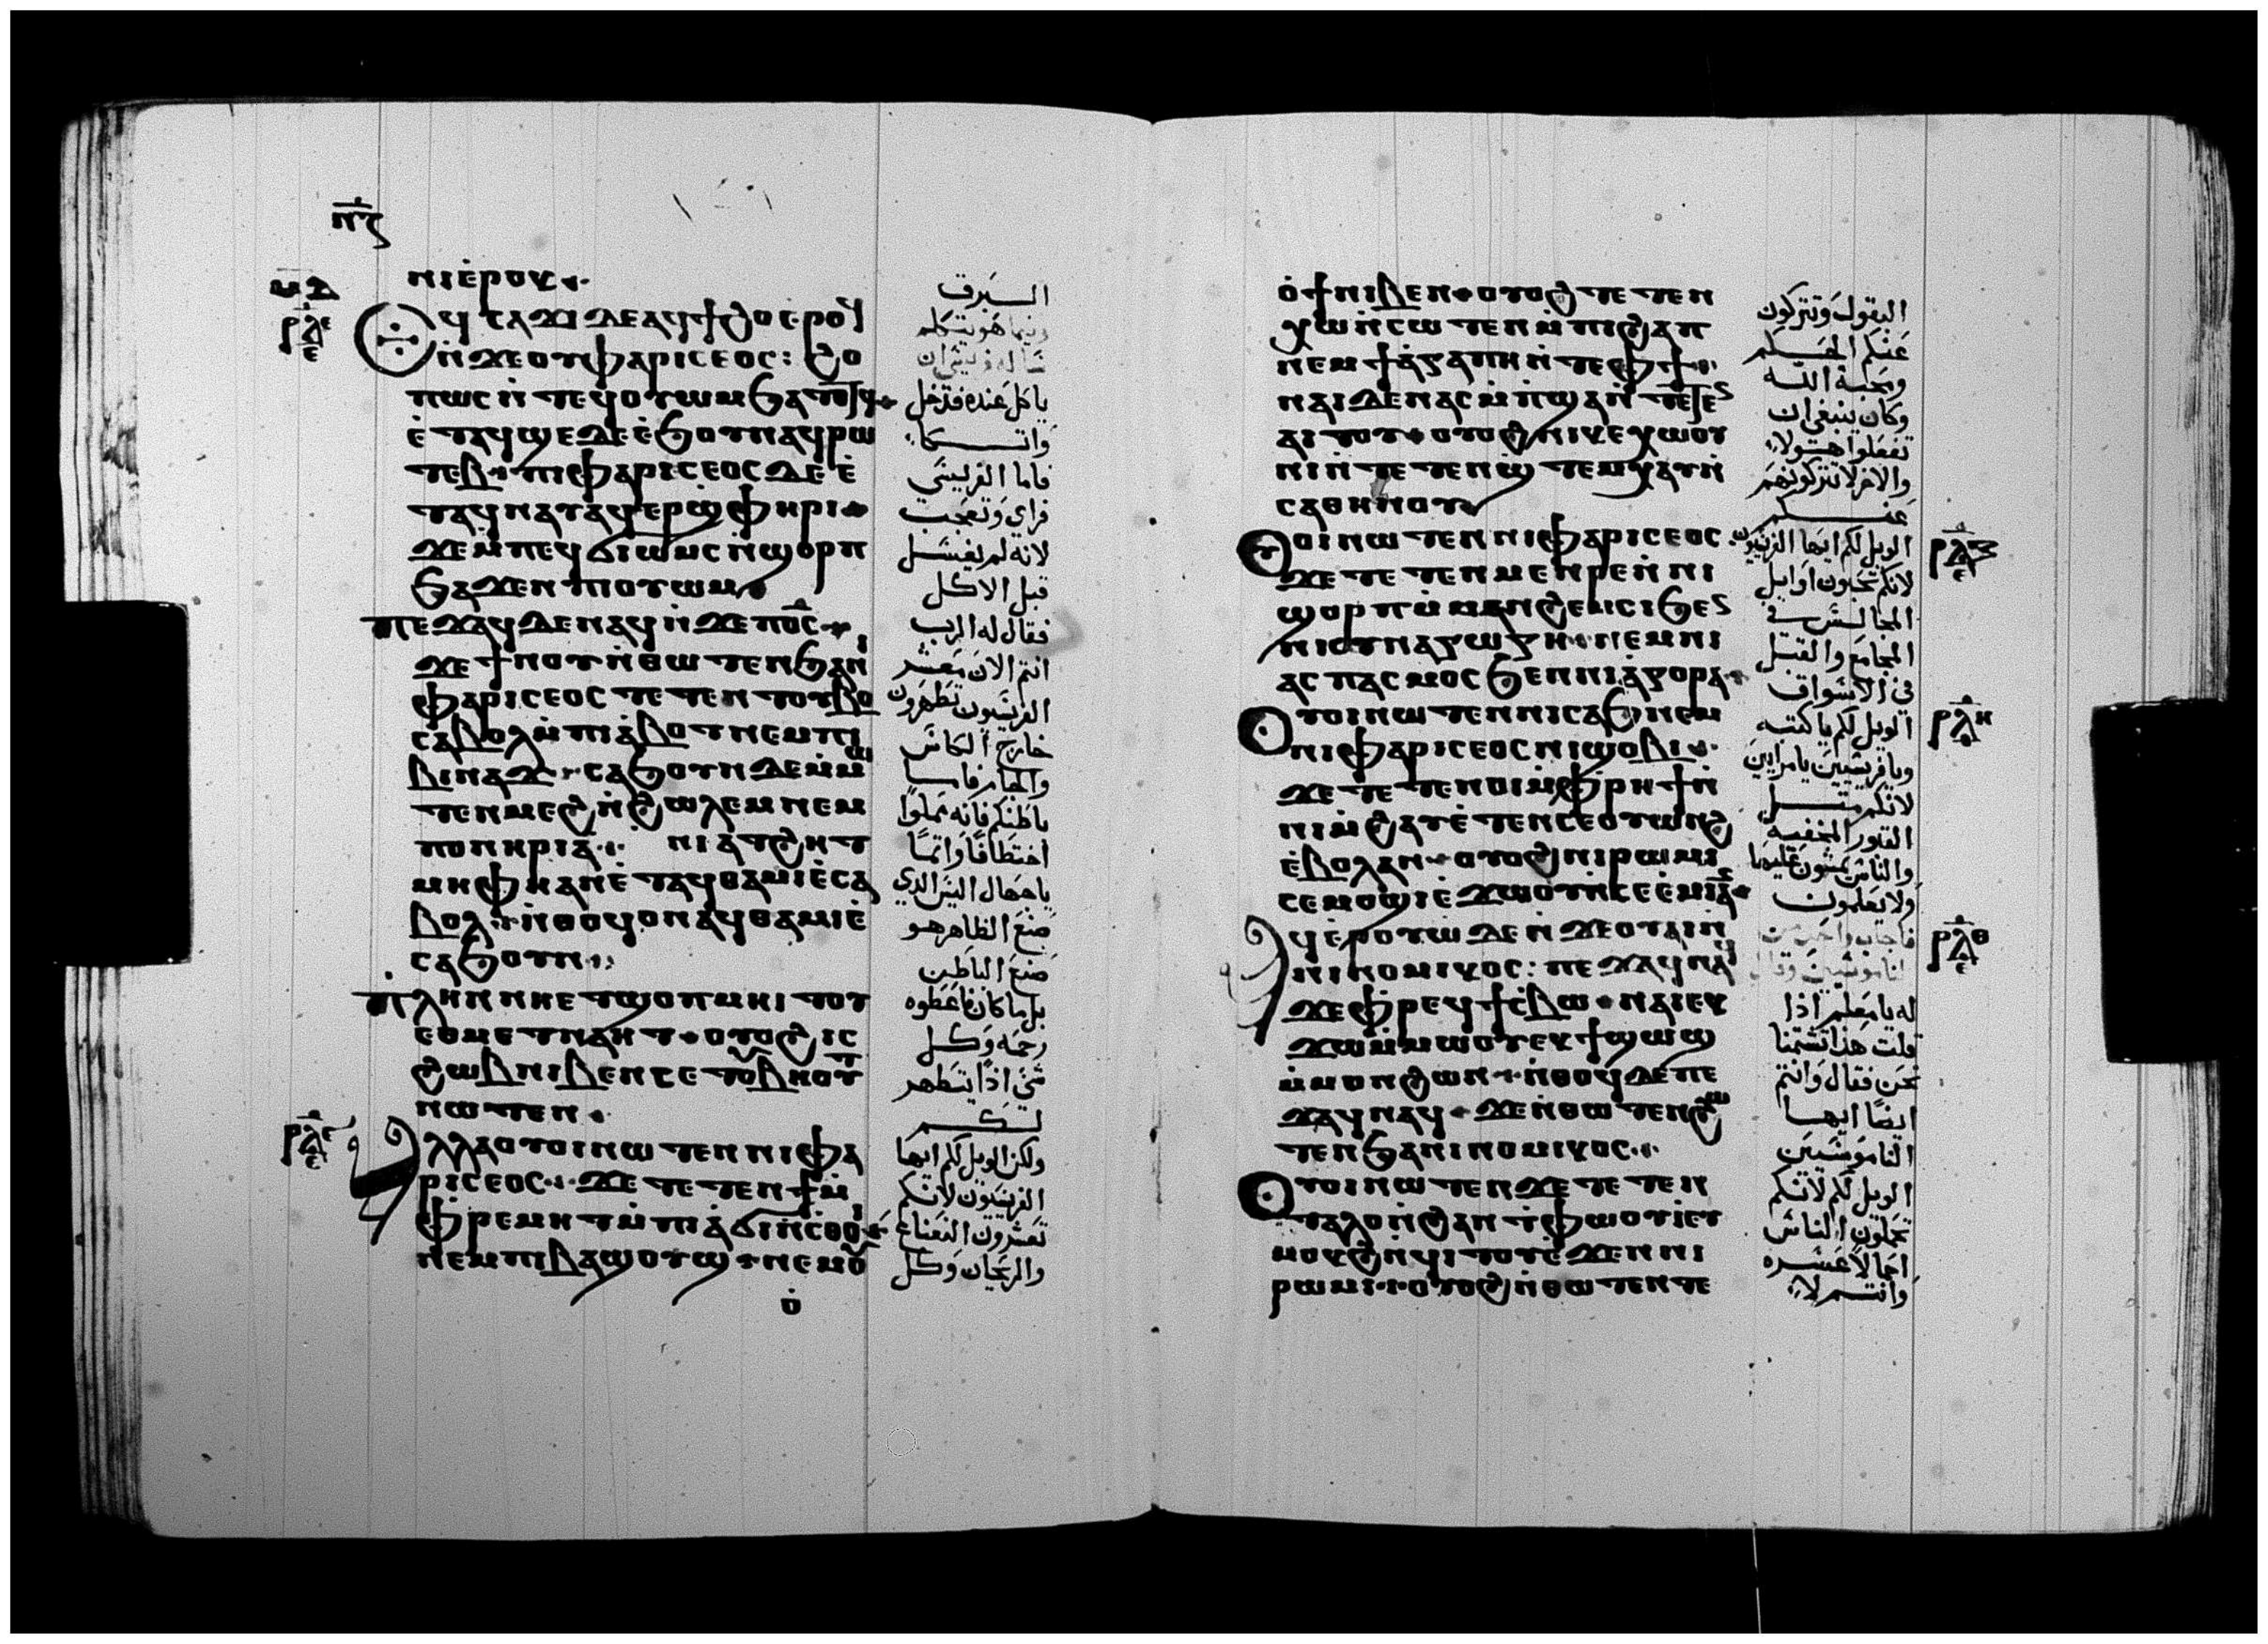 ⲡ̅ⲍ̅
ⲙⲇ
ⲣⲗⲉ
ⲉ
ⲛⲓⲉ̀ⲣⲟⲩ·
Ⲉϥⲥⲁϫⲓ ⲇⲉ ⲁϥϯϩⲟ ⲉ̀ⲣⲟϥ
ⲛ̀ϫⲉⲟⲩⲫⲁⲣⲓⲥⲉⲟⲥ: ϩⲟ
ⲡⲱⲥ ⲛ̀ⲧⲉϥⲟⲩⲱⲙ ϧⲁⲧⲟⲧϥ·
ⲉ̀ⲧⲁϥϣⲉ ⲇⲉ ⲉ̀ϧⲟⲩⲛ ⲁϥⲣⲱ
ⲧⲉⲃ· ⲡⲓⲫⲁⲣⲓⲥⲉⲟⲥ ⲇⲉ ⲉ̀
ⲧⲁϥⲛⲁⲩ ⲁϥⲉⲣϣⲫⲏⲣⲓ·
ϫⲉ ⲙ̀ⲡⲉϥϭⲓⲱⲙⲥ ⲛ̀ϣⲟⲣⲡ
ϧⲁϫⲉⲛ ⲡⲟⲩⲱⲙ·
ⲡⲉϫⲁϥ ⲇⲉ ⲛⲁϥ ⲛ̀ϫⲉ ⲡⲟ̅ⲥ̅·
ϫⲉ ϯⲛⲟⲩ ⲛ̀ⲑⲱⲧⲉⲛ ϧⲁ ⲛⲓ
ⲫⲁⲣⲓⲥⲉⲟⲥ ⲧⲉⲧⲉⲛⲧⲟⲩⲃⲟ
ⲥⲁⲃⲟⲗ ⲙ̀ⲡⲓⲁ̀ⲃⲟⲧ ⲛⲉⲙ ⲡⲓ
ⲃⲓⲛⲁϫ· ⲥⲁϧⲟⲩⲛ ⲇⲉ ⲙ̀ⲙⲱ
ⲧⲉⲛ ⲙⲉϩ ⲛ̀ϩⲱⲗⲉⲙ ⲛⲉⲙ
ⲡⲟⲛⲏⲣⲓⲁ· ⲛⲓⲁⲧϩⲏⲧ
ⲙⲏ ⲫⲏ ⲁⲛ ⲉ̀ⲧⲁϥⲑⲁⲙⲓⲉ̀ ⲥⲁ
ⲃⲟⲗ· ⲛ̀ⲑⲟϥ ⲟⲛ ⲁϥⲑⲁⲙⲓⲉ̀
ⲥⲁϧⲟⲩⲛ·
ⲡⲗⲏⲛ ⲛⲏ ⲉⲧϣⲟⲡ ⲙⲏⲓⲧⲟⲩ
ⲉⲑⲙⲉⲧⲛⲁⲏⲧ· ⲟⲩⲟϩ ⲓⲥ
ϩⲱⲃ ⲛⲓⲃⲉⲛ ⲥⲉⲧⲟⲩⲃⲏⲟⲩⲧ
ⲛⲱⲧⲉⲛ·
ⲣⲗⲋ
ⲉ
Ⲁⲗⲗⲁ ⲟⲩⲟⲓ ⲛⲱⲧⲉⲛ ⲛⲓⲫⲁ
ⲣⲓⲥⲉⲟⲥ· ϫⲉ ⲧⲉⲧⲉⲛϯ ⲙ̀
ⲫⲣⲉⲙⲏⲧ ⲙ̀ⲡⲓⲁ̀ϭⲓⲛⲥⲑⲟⲓ·
ⲛⲉⲙ ⲡⲓⲃⲁϣⲟⲩϣ· ⲛⲉⲙ ⲟⲩ
ⲟ̀
السيرق
وبينما هو يتكلم
ساله فريسى ان
ياكل عنده فدخل
واتكا
فاما الفريسي
فراي وتعجب
لانه لم يغتسل
قبل الاكل
فقال له الرب
انتم الان معشر
الفريسيون تطهرون
خارج الكاس
والجام فاما
باطنكم فانه مملوا
اختطافا واتما
ياجهال اليس الدي
صنع الظاهر هو
صنع الباطن
بل ما كان فاعطوه
رحمه وكل
شى اذا يتطهر
لكم
ولكن الويل لكم ايها
الفريسيون لانكم
تعشرون النعناع
والريحان وكل
ⲟ̀ϯ ⲛⲓⲃⲉⲛ· ⲟⲩⲟϩ ⲧⲉⲧⲉⲛ
ⲭⲱ ⲛ̀ⲥⲱⲧⲉⲛ ⲙ̀ⲡⲓϩⲁⲡ
ⲛⲉⲙ ϯⲁ̀ⲅⲁⲡⲏ ⲛ̀ⲧⲉ ⲫϯ·
ⲛⲁⲓ ⲇⲉ ⲛⲁⲥⲙ̀ⲡϣⲁ ⲛ̀ⲧⲉⲧⲉⲛ
ⲁⲓⲧⲟⲩ· ⲟⲩⲟϩ ⲛⲓⲕⲉⲭⲱⲟⲩ
ⲛⲓ ⲛ̀ⲧⲉⲧⲉⲛϣⲧⲉⲙⲭⲁⲩ ⲛ̀
ⲥⲁⲑⲏⲛⲟⲩ
ⲣⲗⲍ
ⲉ
Ⲟⲩⲟⲓ ⲛⲱⲧⲉⲛ ⲛⲓⲫⲁⲣⲓⲥⲉⲟⲥ·
ϫⲉ ⲧⲉⲧⲉⲛⲙⲉⲛⲣⲉ ⲛ̀ⲛⲓ
ϣⲟⲣⲡ ⲙ̀ⲙⲁⲛϩⲉⲙⲥⲓ ϧⲉⲛ
ⲛⲓⲥⲩⲛⲁⲅⲱⲅⲏ· ⲛⲉⲙ ⲛⲓ
ⲁⲥⲡⲁⲥⲙⲟⲥ ϧⲉⲛ ⲛⲓⲁ̀ⲅⲟⲣⲁ·
ⲣⲗⲏ
Ⲟⲩⲟⲓ ⲛⲱⲧⲉⲛ ⲛⲓⲥⲁϧ ⲛⲉⲙ
ⲛⲓⲫⲁⲣⲓⲥⲉⲟⲥ ⲛⲓϣⲟⲃⲓ·
ϫⲉ ⲧⲉⲧⲉⲛⲟⲓ ⲙ̀ⲫⲣⲏϯ ⲛ̀
ⲛⲓⲙ̀ϩⲁⲩ ⲉ̀ⲧⲉⲛⲥⲉⲟⲩⲱⲛϩ
ⲉ̀ⲃⲟⲗ ⲁⲛ· ⲟⲩⲟϩ ⲛⲓⲣⲱⲙⲓ
ⲥⲉⲙⲟϣⲓ ⲉ̀ϫⲱⲟⲩ ⲛ̀ⲥⲉⲉ̀ⲙⲓ ⲁⲛ·
ⲣⲗⲑ
ⲉ
Ⲁϥⲉ̀ⲣⲟⲩⲱ ⲇⲉ ⲛ̀ϫⲉ ⲟⲩⲁⲓ ⲛ̀
ⲛⲓⲛⲟⲙⲓⲕⲟⲥ: ⲡⲉϫⲁϥ ⲛⲁϥ
ϫⲉ ⲫⲣⲉϥϯⲥ̀ⲃⲱ· ⲛⲁⲓ ⲉⲕ
ϫⲱ ⲙ̀ⲙⲱⲟⲩ ⲉⲕϯϣⲱϣ
ⲙ̀ⲙⲟⲛ ϩⲱⲛ· ⲛ̀ⲑⲟϥ ⲇⲉ ⲡⲉ
ϫⲁϥ ⲛⲁϥ· ϫⲉ ⲛ̀ⲑⲱⲧⲉⲛ ϩⲱ
ⲧⲉⲛ ϧⲁ ⲛⲓⲛⲟⲙⲓⲕⲟⲥ·
Ⲟⲩⲟⲓ ⲛⲱⲧⲉⲛ ϫⲉ ⲧⲉⲧⲉⲛ
ⲧⲁⲗⲟ ⲛ̀ϩⲁⲛⲉ̀ⲧⲫⲱⲟⲩⲓ ⲉⲩ
ⲙⲟⲕϩ ⲛ̀ϥⲓⲧⲟⲩ ⲉ̀ϫⲉⲛ ⲛⲓ
ⲣⲱⲙⲓ· ⲟⲩⲟϩ ⲛ̀ⲑⲱⲧⲉⲛ ⲧⲉ
البقول وتتركون
عنكم الحكم
ومحبة الله
وكان ينبغي ان
تفعلوا هولاء
والاخر لا تتركونهم
عنكم
الويل لكم ايها الفريسيون
لانكم تحبون اوايل
المجالس في
المجامع والقبل
في الاسواق
الويل لكم يا كتبه
ويا فريسيين يا مرايين
لانكم مثل
القبور المخفيه
والناس يمشون عليها
ولا يعلمون
فاجاب واحد من
الناموسيين وقال
له يا معلم اذا
قلت هذا تشتمنا
نحن فقال وانتم
ايضا ايها
الناموسيين
الويل لكم لانكم
تحملون الناس
احمالا عسره
وانتم لا